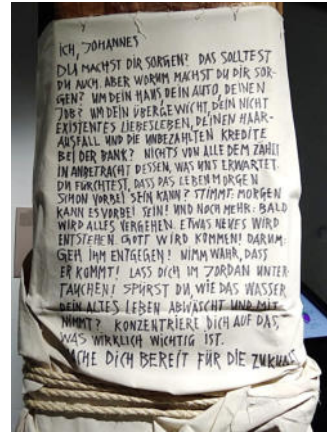 ICH, JOHANNES
DU MACHST DIR SORGEN? DAS SOLLTEST
DU AUCH. ABER WORUM MACHST DU DIR SOR-
GEN? UM DEIN HAUS DEIN AUTO, DEINEN
JOB? UM DEIN ÜBERGEWICHT, DEIN NICHT
EXISTENTES LIEBESLEBEN, DEINEN HAAR-
AUSFALL UND DIE UNBEZAHLTEN KREDITE
BEI DER BANK? NICHTS VON ALLE DEM ZÄHLT
IN ANBETRACHT DESSEN, WAS UNS ERWARTET.
DU FÜRCHTEST, DASS DAS LEBEN MORGEN
SCHON VORBEI SEIN KANN? STIMMT: MORGEN
KANN ES VORBEI SEIN! UND NOCH MEHR: BALD
WIRD ALLES VERGEHEN. ETWAS NEUES WIRD
ENTSTEHEN. GOTT WIRD KOMMEN! DARUM:
GEH IHM ENTGEGEN! NIMM WAHR, DASS
ER KOMMT! LASS DICH IM JORDAN UNTER-
TAUCHEN! SPÜRST DU, WIE DAS WASSER
DEIN ALTES LEBEN ABWÄSCHT UND MIT
NIMMT? KONZENTRIERE DICH AUF DAS,
WAS WIRKLICH WICHTIG IST.
MACHE DICH BEREIT FÜR DIE ZUKUNFT